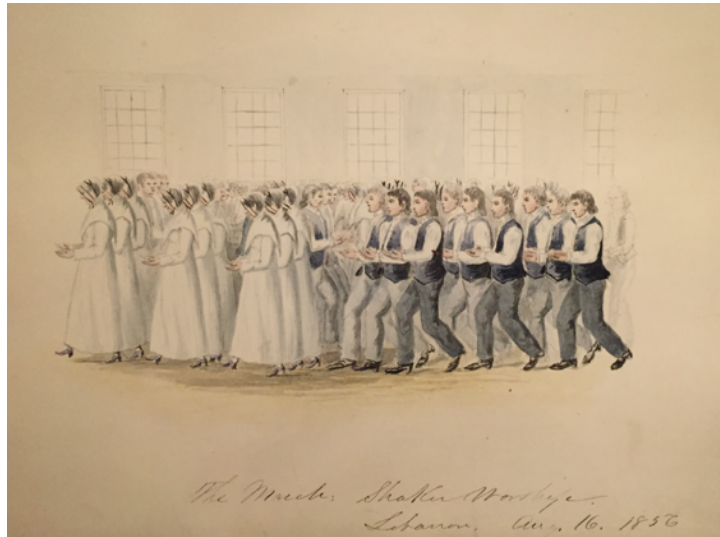 The March: Shaker Worship.
Lebanon. Aug. 16. 1856